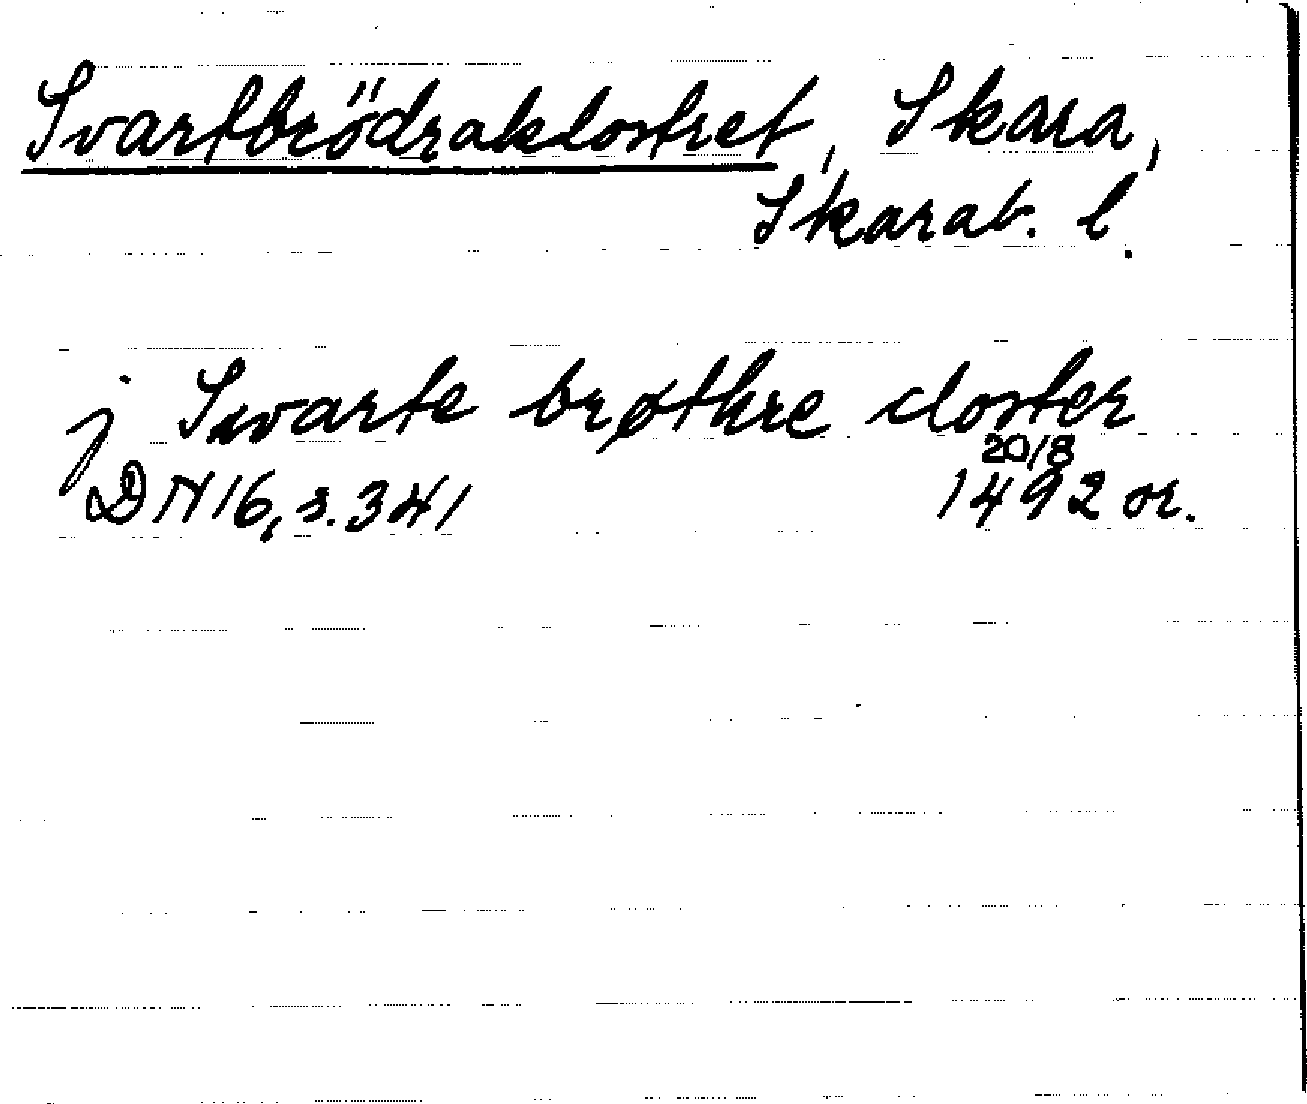 Svartbrödraklostret, Skara,
Skarab. l.
j Swarte brøthre closter
20/8
DN 16, s. 341 1492 or.